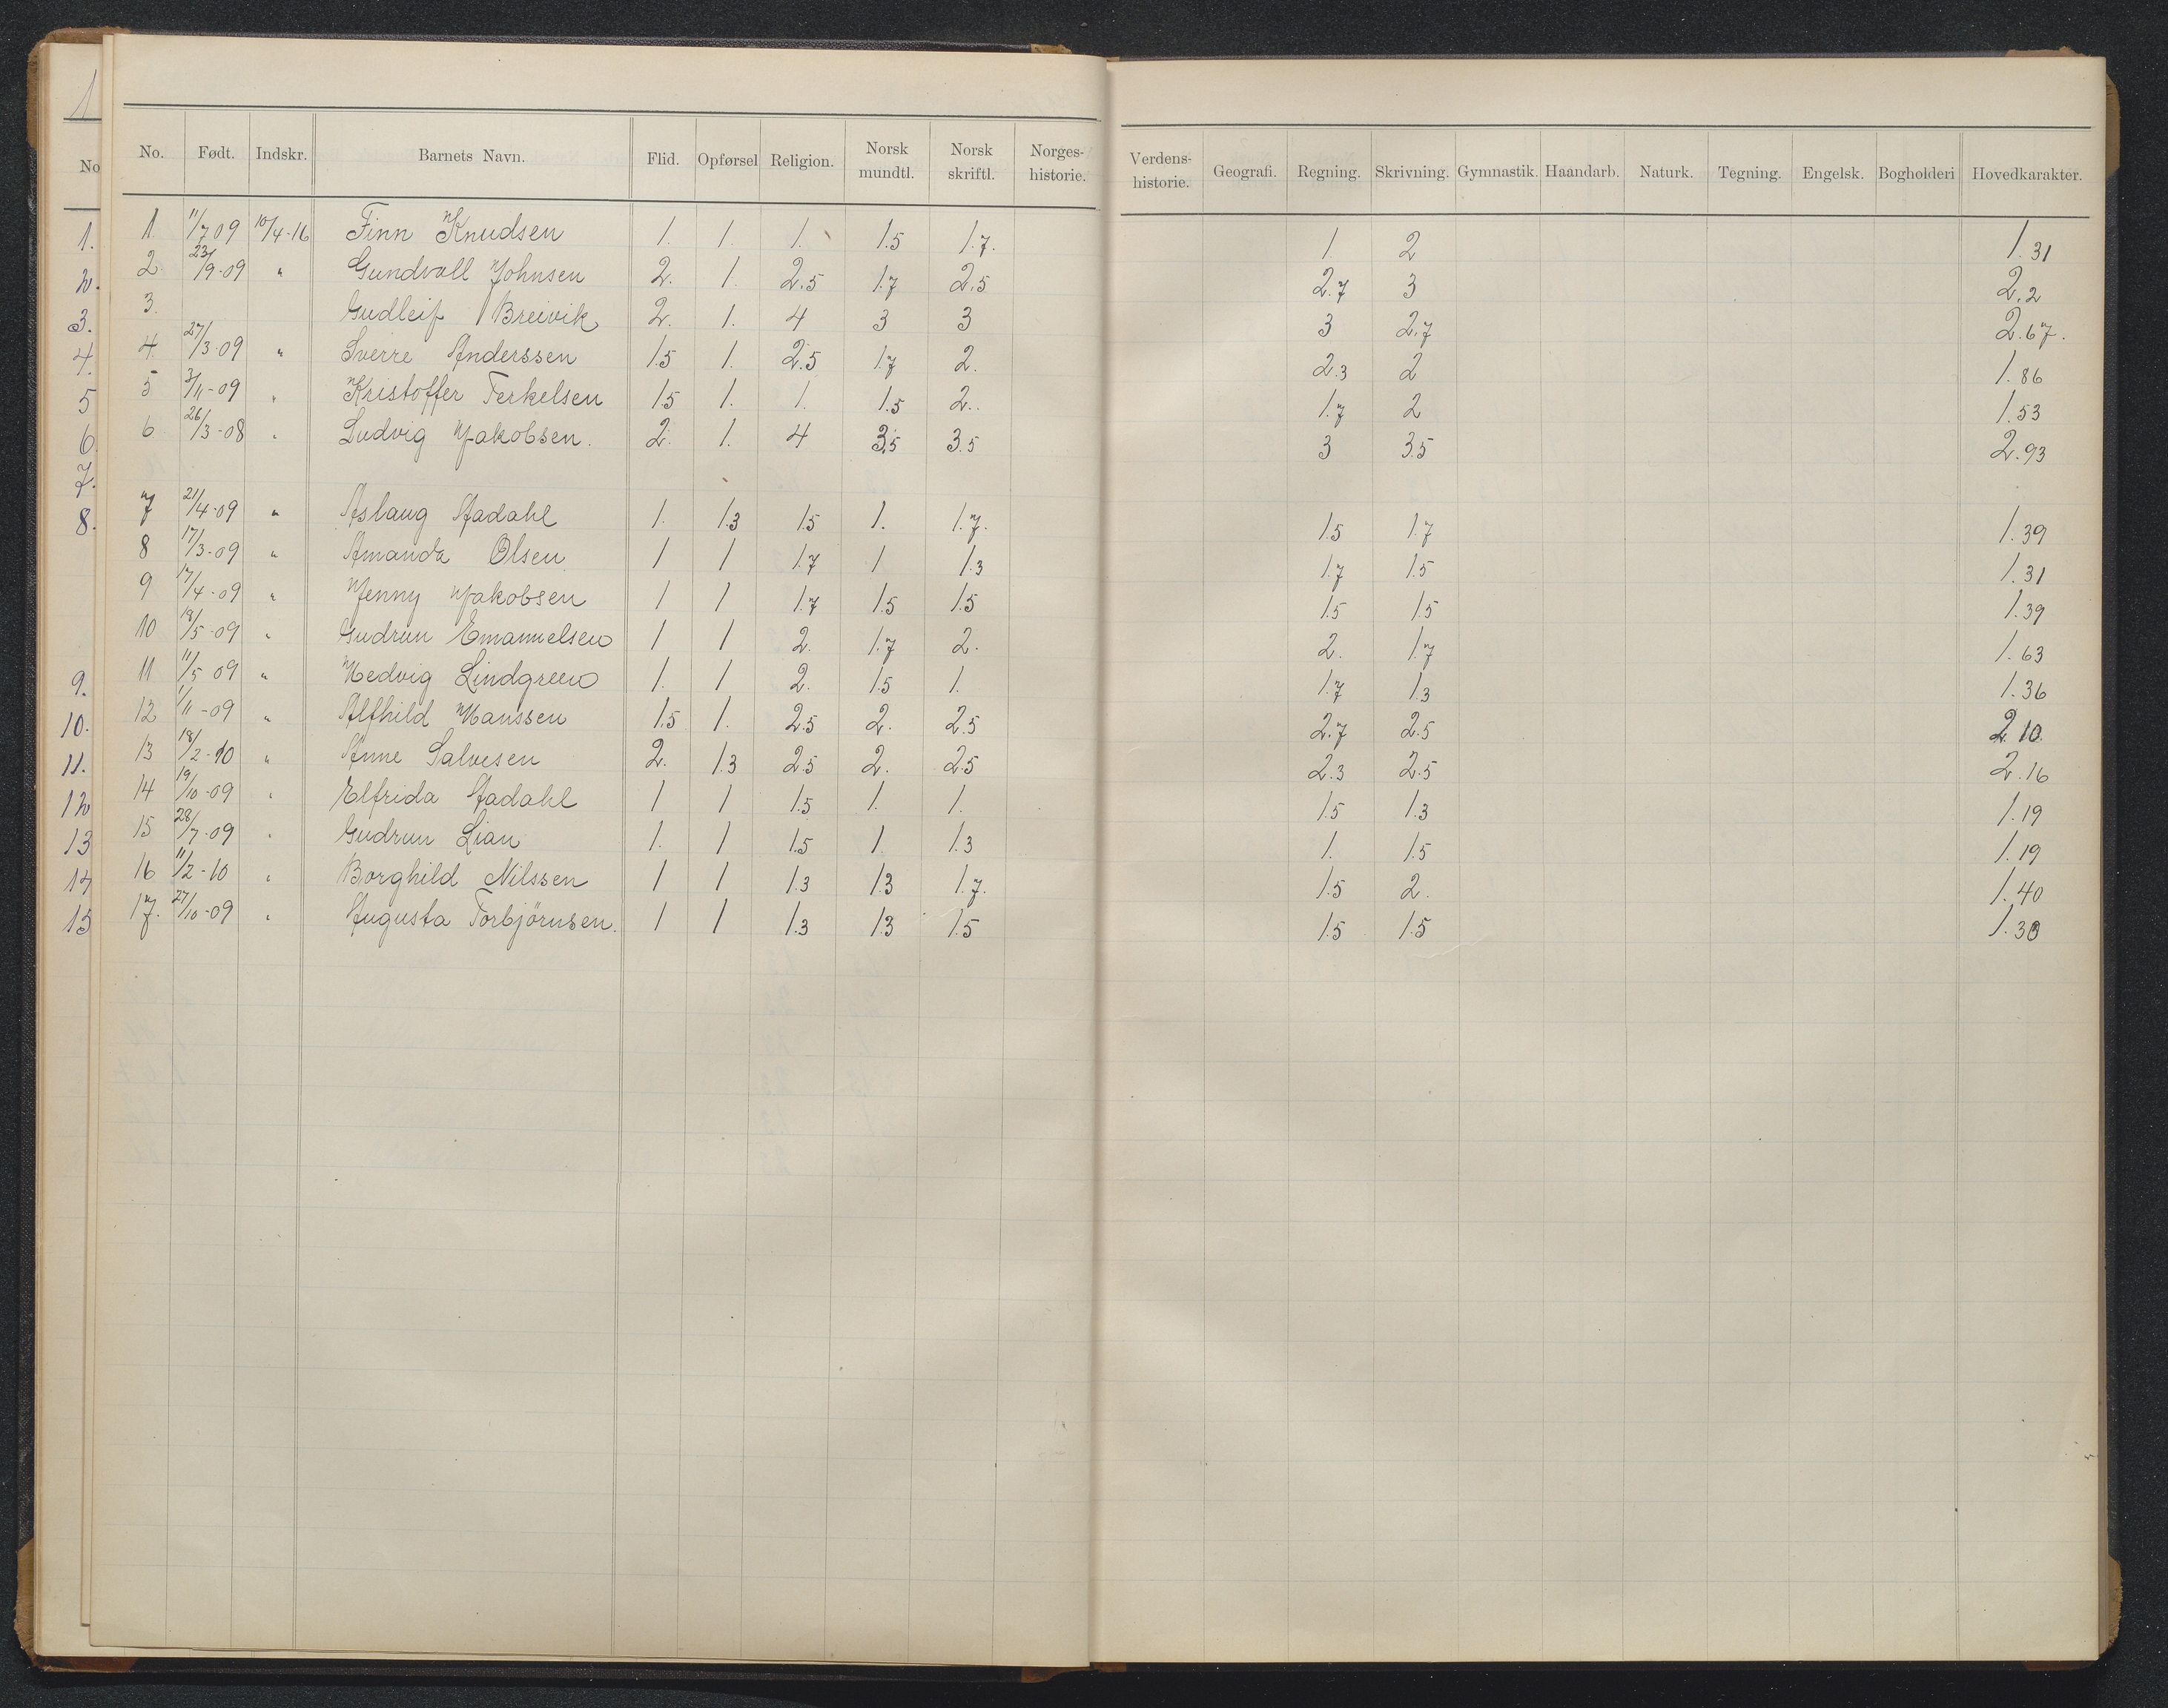 No. Født. Indskr. Barnets Navn. Flid. Opførsel Religion. Norsk mundtl. Norsk skriftl. Norges-historie. Verdens-historie. Geografi. Regning. Skrivning. Gymnastik. Haandarb. Naturk. Tegning. Engelsk. Bogholderi Hovedkarakter.
1. 11/7 09 10/4-16 Finn Knudsen 1. 1. 1. 1.5 1.7. 1. 2 1.31
2 23/9-09 " Gundvall Johnsen 2. 1. 2.5 1.7 2.5 2.7 3 2.2
3. Gudleif Breivik 2. 1. 4 3 3 3 2.7 2.67.
4. 27/3-09 " Sverre Anderssen 1.5 1. 2.5 1.7 2. 2.3 2 1.86
5 3/11-09 " Kristoffer Terkelsen 1.5 1. 1. 1.5 2. 1.7 2 1.53
6 26/3-08 " Ludvig Jakobsen. 2. 1. 4 3.5 3.5 3 3.5 2.93
7 21/4-09 " Aslaug Aadahl 1. 1.3 1.5 1. 1.7. 1.5 1.7 1.39
8 17/3-09 " Amanda Olsen 1 1 1.7 1 1.3 1.7 1.5 1.31
9 17/4-09 " Jenny Jakobsen 1 1 1.7 1.5 1.5 1.5 1.5 1.39
10 19/5-09 " Gudrun Emanuelsen 1 1 2. 1.7 2. 2. 1.7 1.63
11 11/5 09 " Hedvig Lindgreen 1. 1 2. 1.5 1. 1.7 1.3 1.36
12 1/11-09 " Alfhild Hanssen 1.5 1. 2.5 2. 2.5 2.7 2.5 2.10
13 18/2-10 " Anne Salvesen 2. 1.3 2.5 2. 2.5 2.3 2.5 2.16
14 19/10-09 " Elfrida Aadahl 1 1 1.5 1. 1. 1.5 1.3 1.19
15 28/7-09 " Gudrun Lian 1. 1 1.5 1 1.3 1. 1.5 1.19
16 11/2-10 " Borghild Nilssen 1 1 1.3 1.3 1.7. 1.5 2. 1.40
17. 27/10-09 " Augusta Torbjörnsen. 1 1 1.3 1.3 1.5 1.5 1.5 1.30
No
1.
2.
3.
4.
5
6
7.
8.
9.
10.
11.
12
13
14
15